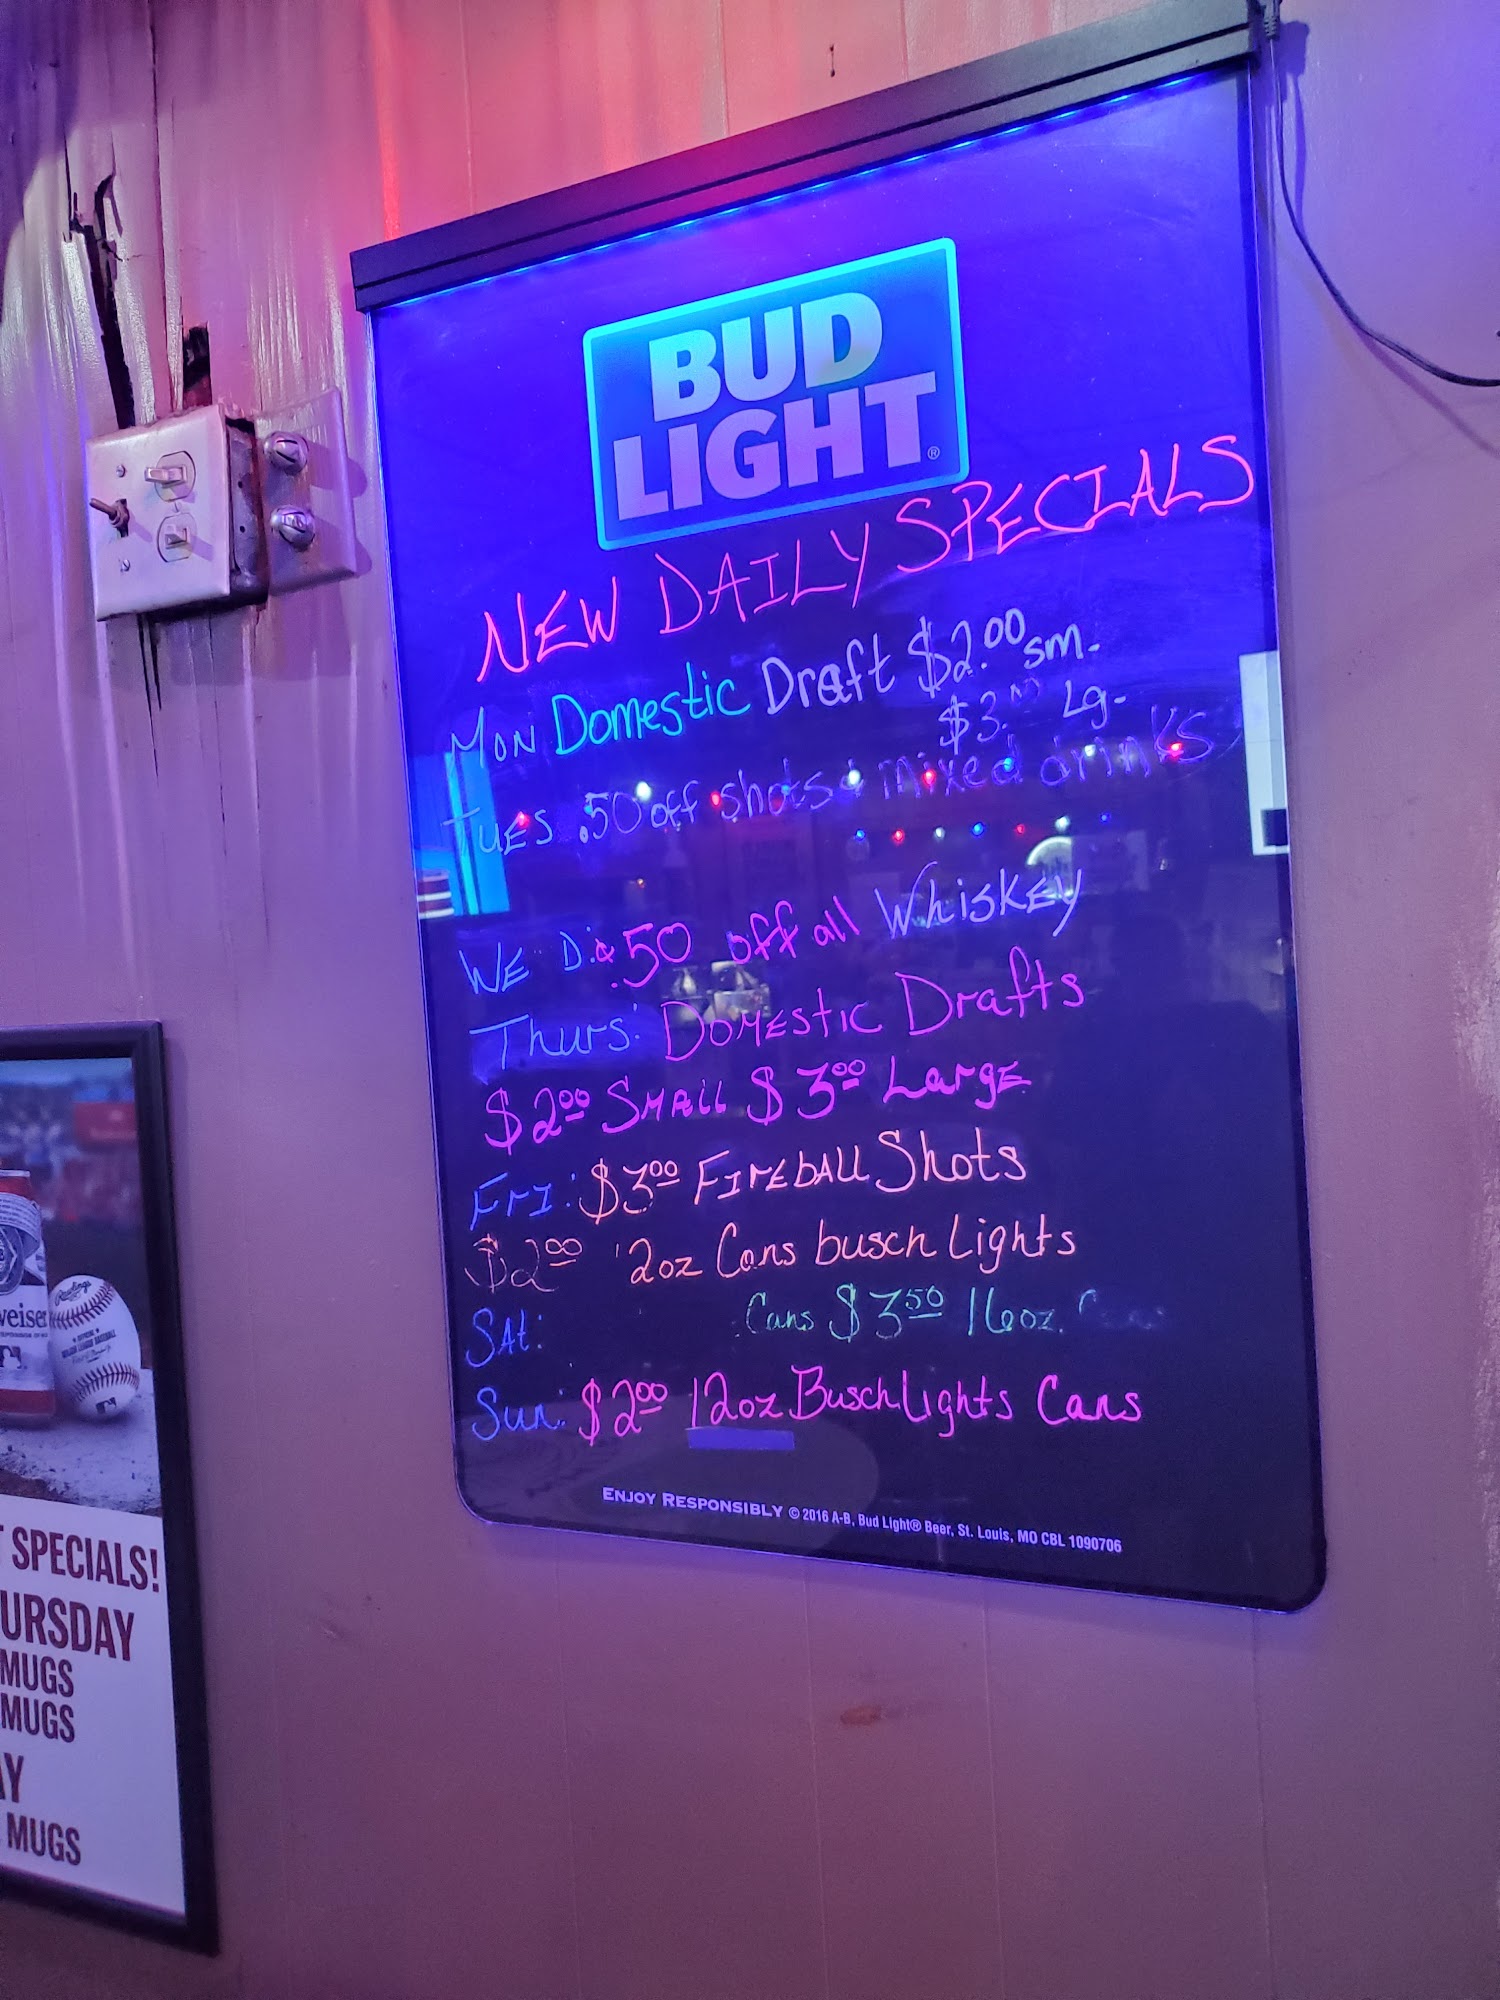 BUD
LIGHT®
NEW DAILY SPECIALS
MON Domestic Draft $2.00 sm.
$3. Lg.
TUES .50 off shots & mixed drinks
WED: .50 off all Whiskey
Thurs: DOMESTIC Drafts
$2.00 SMALL $3.00 Large
FrI: $3.00 FIrEBALL Shots
$2.00 12oz Cans busch Lights
SAt: Cans $3.50 16oz.
Sun: $2.00 12oz Busch Lights Cans
ENJOY RESPONSIBLY © 2016 A-B, Bud Light® Beer, St. Louis, MO CBL 1090706
Rawlings
weiser
T SPECIALS!
URSDAY
MUGS
MUGS
AY
MUGS